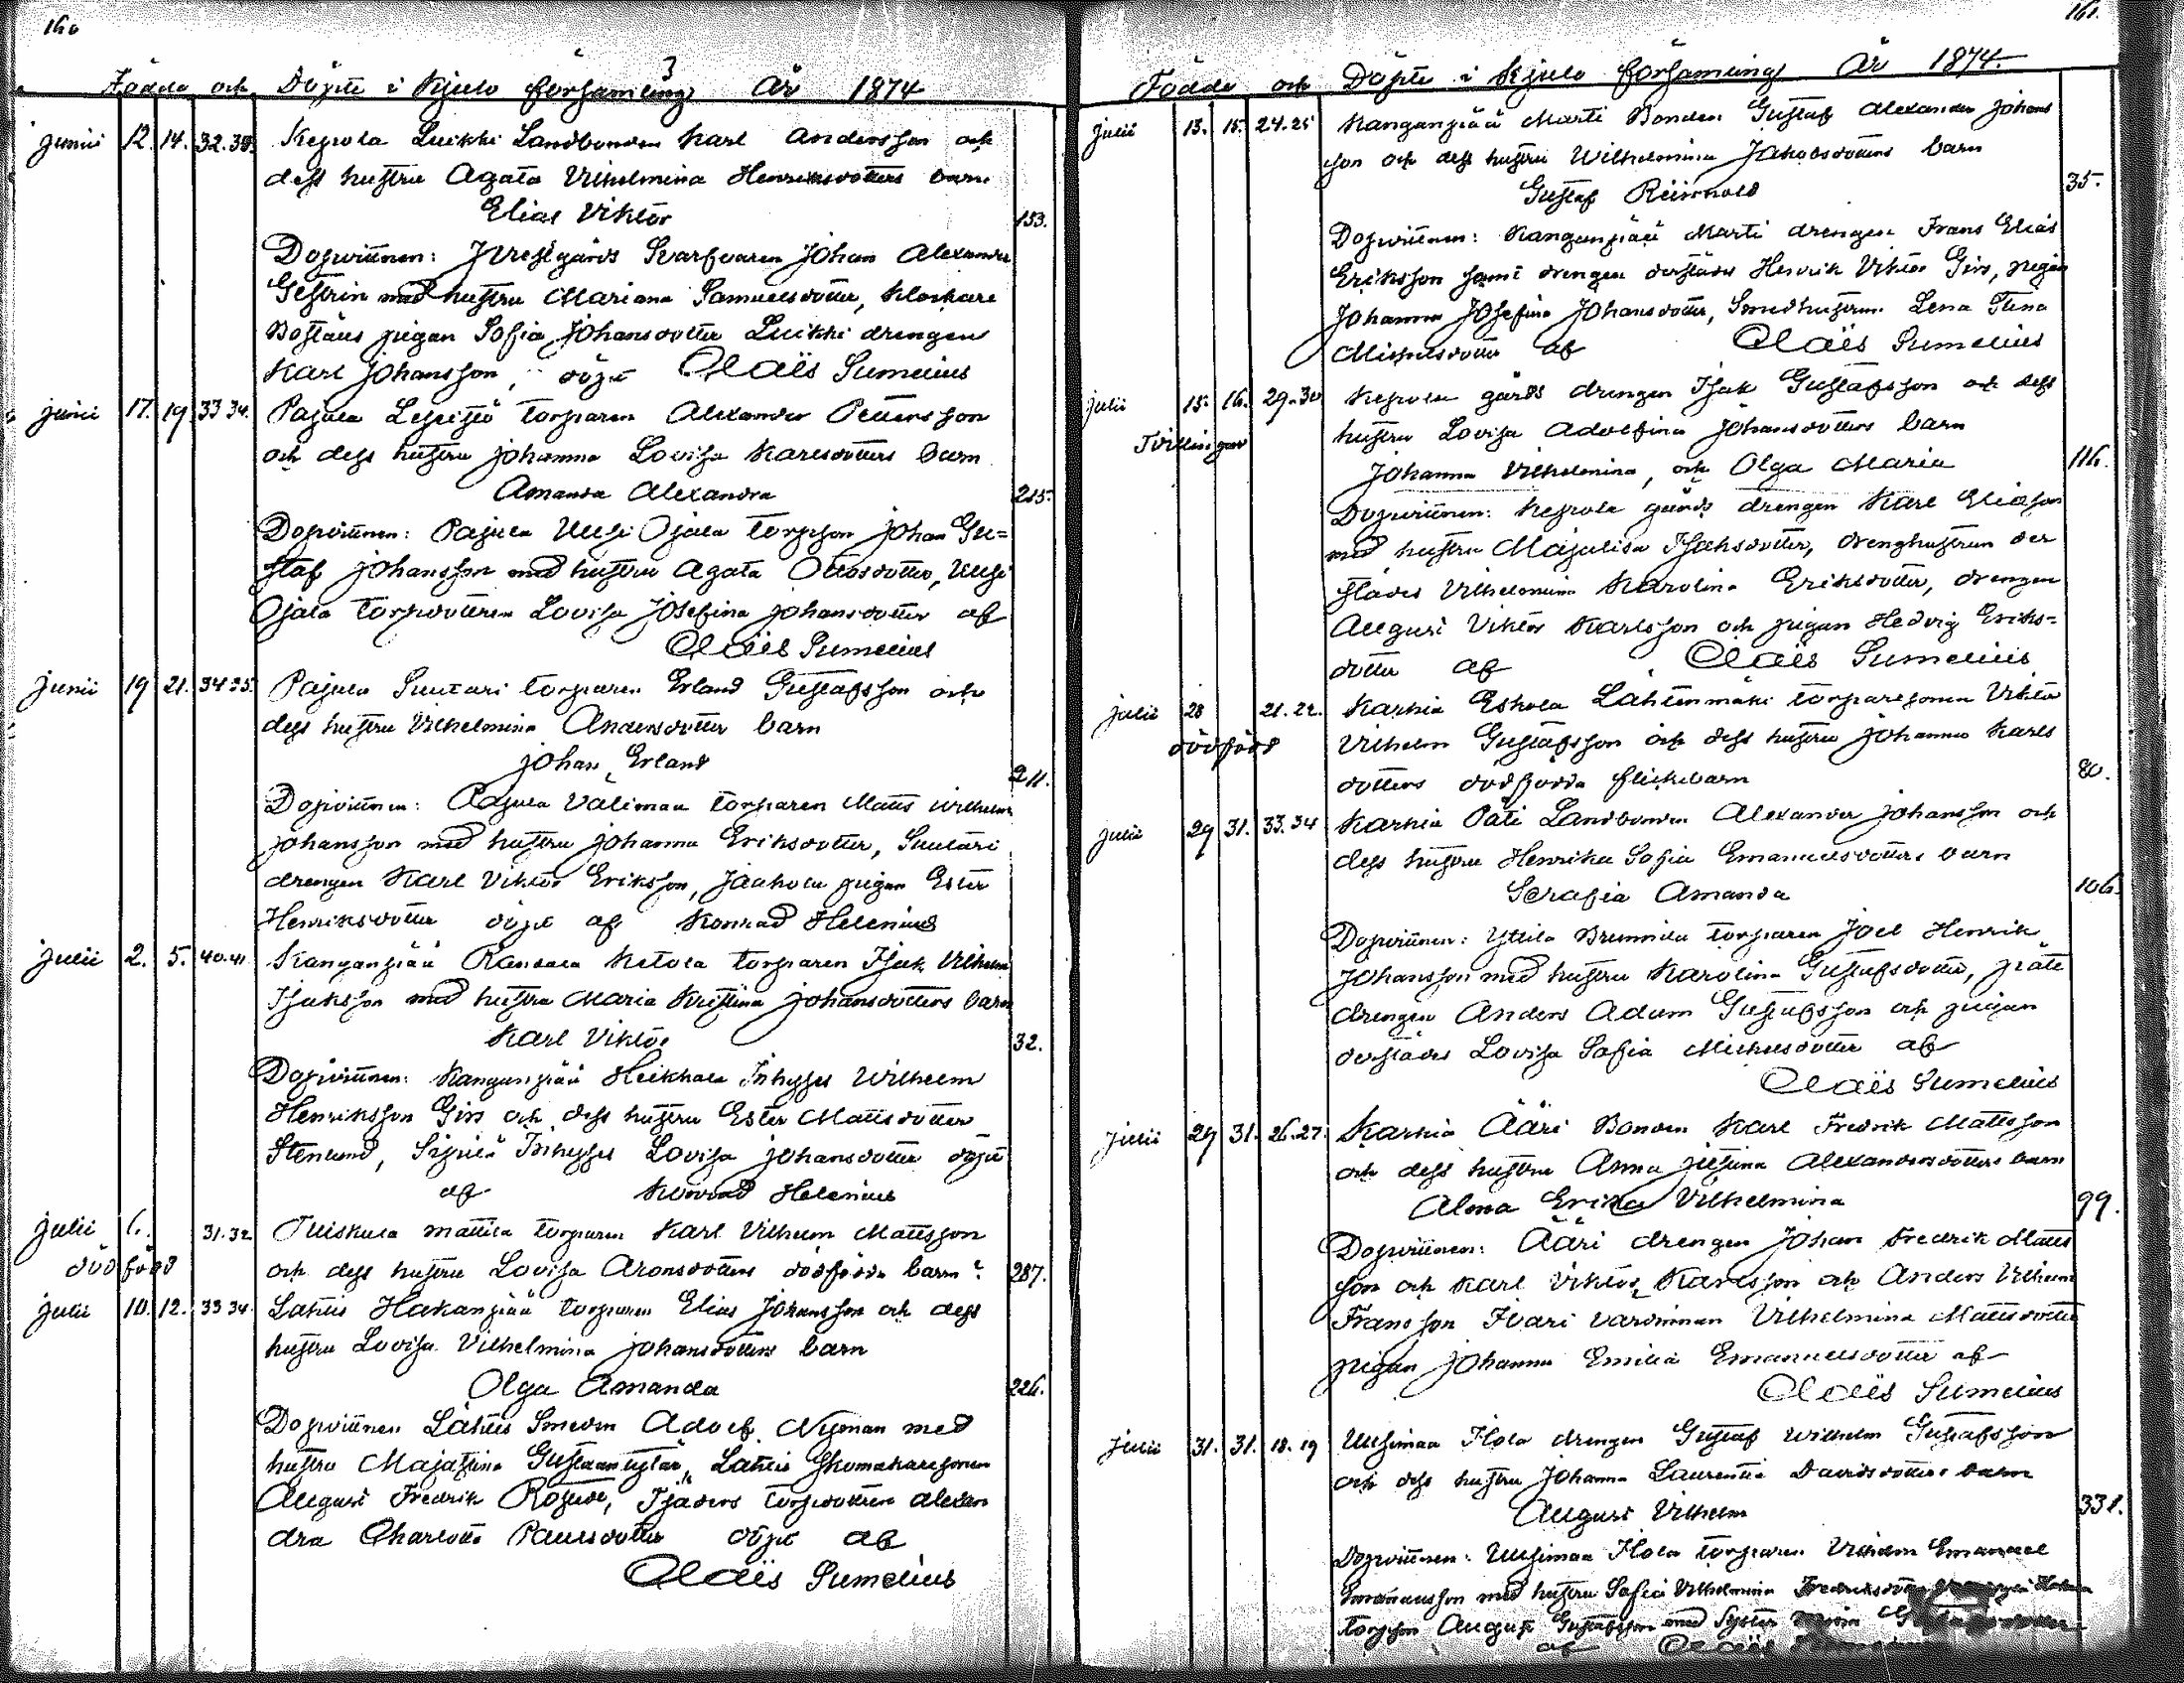 160
Födde och Döpte i Kjulo församling År 1874
junii 12. 14. 32.38. Kepola Luikki Landbonden Karl Andersson och
dess hustru Agata Vilhelmina Henriksdotters barn
Elias Viktor 153.
Dopvittnen: Svarfvaren Johan Alexander
Gestrin med hustru Mariana Samuelsdotter, Klockare
Boställs pigan Sofia Johansdotter Luikki drengen
Karl Johansson, döpt Claës Sumelius
junii 17. 19. 33 34. Pajula Lepistö torparen Alexander Pettersson
och dess hustru Johanna Lovisa Karlsdotters barn
Amanda Alexandra 215.
Dopvittnen: Pajula Uusi Ojala torpson Johan Gu=
staf Johansson med hustru Agata Ottosdotter, Uusi
Ojala torpdottren Lovisa Josefina Johansdotter af
Claës Sumelius
junii 19 21. 34 35. Pajula Suutari torparen Erland Gustafsson och
dess hustru Vilhelmina Andersdotter barn
Johan Erland 211.
Dopvittnen: Pajula Välimaa torparen Matts Wilhelm
Johansson med hustru Johanna Eriksdotter, Suutari
drengen Karl Viktor Eriksson, Jaakola pigan Ester
Henriksdotter döpt af Konrad Helenius
julii 2. 5. 40.41 Kanganpää Ketola torparen Isak Vilhelm
Isaksson med hustru Maria Kristina Johansdotters barn
Karl Viktor 32.
Dopvittnen: Kanganpää Heikkala Inhyses Wilhelm
Henriksson Girs och dess hustru Ester Mattsdotter
Stenlund, Inhyses Lovisa Johansdotter döpt
af Konrad Helenius
julii 6. 31.32 Tuiskula Mattila torparen Karl Vilhelm Mattsson
dödföd och dess hustru Lovisa Aronsdotters dödfödda barn 287.
julii 10. 12. 33 34. Lähtis Hakanpää torparen Elias Johansson och dess
hustru Lovisa Vilhelmina Johansdotters barn
Olga Amanda 226.
Dopvittnen Lähtis Smeden Adolf Nyman med
hustru Majastina Lähtis Skomakaresonen
August Fredrik torpdottren Alexan
dra Charlotta Paulsdotter döpt af
Claës Sumelius
161.
Födde och Döpte i Kjulo församling År 1874.
julii 13. 15. 24.25 Kanganpää Martti Bonden Gustaf Alexander Johans
son och dess hustru Wilhelmina Jakobsdotters barn
Gustaf Reinhold 35.
Dopvittnen: Kanganpää Martti drengen Frans Elias
Eriksson samt drengen derstädes Henrik Viktor Girs, pigan
Johanna Josefina Johansdotter, Smedhustrun Lena Stina
Michelsdotter af Claës Sumelius
julii 15. 16. 29.30 Kepola gårds drengen Isak Gustafsson och dess
Tvillingar hustru Lovisa Adolfina Johansdotters barn
Johanna Vilhelmina, och Olga Maria 116.
Dopvittnen: Kepola gårds drengen Karl Eliasson
med hustru Majalisa Isaksdotter, drenghustrun der
städes Vilhelmina Karolina Eriksdotter, drengen
August Viktor Karlsson och pigan Hedvig Eriks=
dotter af Claës Sumelius
julii 28 21.22. Karhia Eskola Lähtenmäki torparesonen Viktor
dödföd Vilhelm Gustafsson och dess hustru Johanna Karls
dotters dödfödda flickebarn 80.
julii 29 31. 33.34 Karhia Pati Landbonden Alexander Johansson och
dess hustru Henrika Sofia Emanuelsdotters barn
Serafia Amanda 106.
Dopvittnen: Yttilä torparen Joel Henrik
Johansson med hustru Karolina Gustafsdotter,
drengen Anders Adam Gustafsson och pigan
derstädes Lovisa Sofia Michelsdotter af
Claës Sumelius
julii 29 31. 26.27. Karhia Ääri Bonden Karl Fredrik Mattsson
och dess hustru Anna Justina Alexandersdotters barn
Alma Erika Vilhelmina 99.
Dopvittnen: Ääri drengen Johan Fredrik Matts
son och Karl Viktor Karlsson och Anders Vilhelm
Fransson Iivari värdinnan Vilhelmina Mattsdotter
pigan Johanna Emilia Emanuelsdotter af
Claës Sumelius
julii 31. 31. 18.19 Uusimaa Ilola drengen Gustaf Wilhelm Gustafsson
och dess hustru Johanna Laurentia Davidsdotters barn
August Vilhelm 331.
Dopvittnen: Uusimaa Ilola torparen Vilhelm Emanuel
Emanuelsson med hustru Sofia Vilhelmina
torpson August Gustafsson med Syster
af Claës